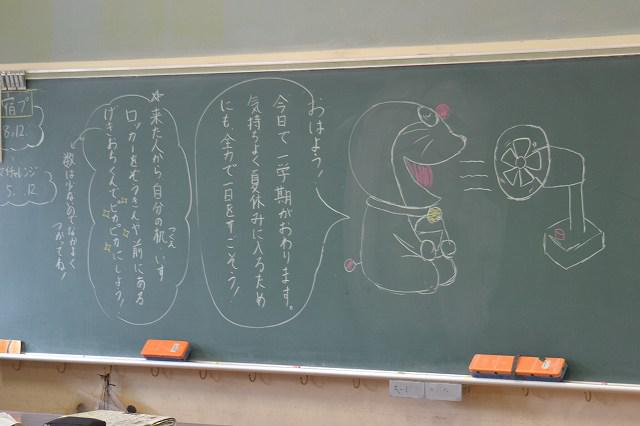 おはよう！
今日で一学期がおわります。
気持ちよく夏休みに入るため
にも、全力で一日をすごそう！
☆来た人から自分の机、いす
つくえ
ロッカーをぞうきんや前にある
げきおちくんでピカピカにしよう！
数は少ないのでなかよく
つかってね！
宿プ
8.12
チャレンジ
5.12